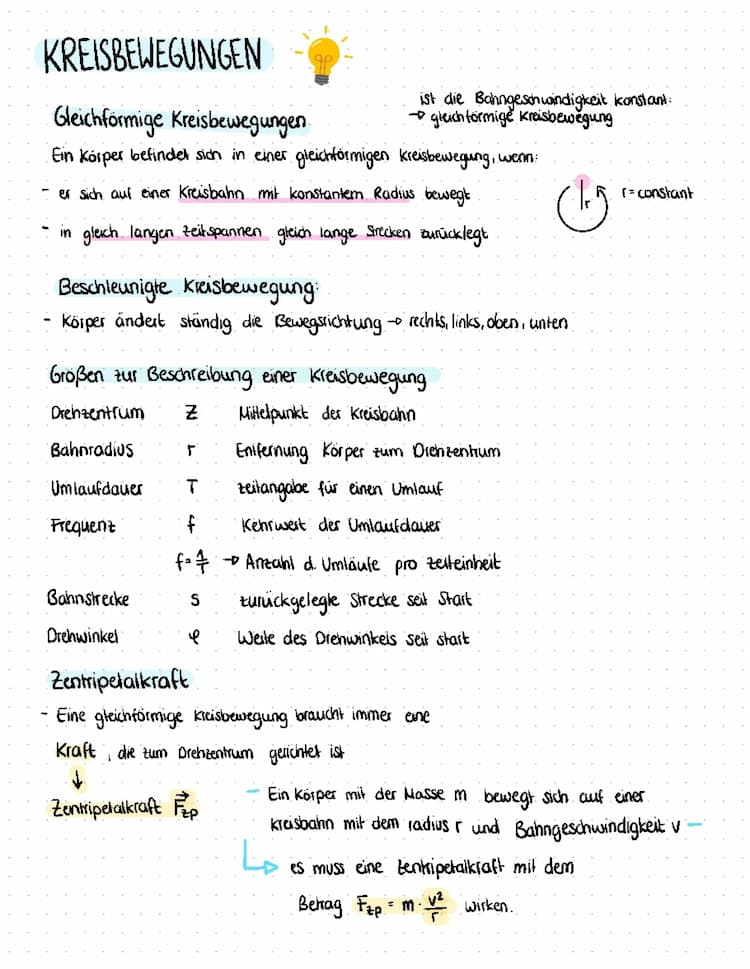 KREISBEWEGUNGEN
ist die Bahngeschwindigkeit konstant:
→ gleichförmige Kreisbewegung
Gleichförmige Kreisbewegungen
Ein Körper befindet sich in einer gleichförmigen Kreisbewegung, wenn:
- er sich auf einer Kreisbahn mit konstantem Radius bewegt
r
r = constant
- in gleich langen Zeitspannen gleich lange Strecken zurücklegt
Beschleunigte Kreisbewegung:
- Körper ändert ständig die Bewegsrichtung → rechts, links, oben, unten
Größen zur Beschreibung einer Kreisbewegung
Drehzentrum Z Mittelpunkt der Kreisbahn
Bahnradius r Entfernung Körper zum Drehzentrum
Umlaufdauer T Zeitangabe für einen Umlauf
Frequenz f Kehrwert der Umlaufdauer
f = 1/T → Anzahl d. Umläufe pro Zeiteinheit
Bahnstrecke s zurückgelegte Strecke seit Start
Drehwinkel φ Weite des Drehwinkels seit Start
Zentripetalkraft
- Eine gleichförmige Kreisbewegung braucht immer eine
Kraft, die zum Drehzentrum gerichtet ist
↓
Zentripetalkraft F⃗zp
- Ein Körper mit der Masse m bewegt sich auf einer
Kreisbahn mit dem radius r und Bahngeschwindigkeit v -
→ es muss eine Zentripetalkraft mit dem
Betrag Fzp = m · v²/r wirken.